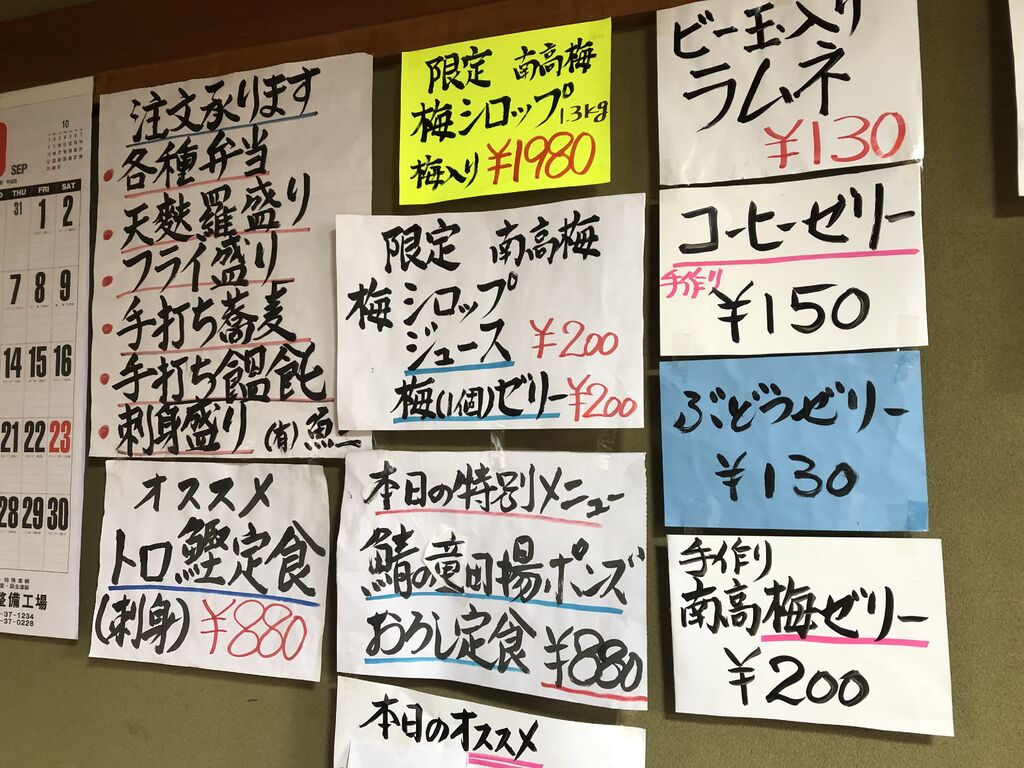 10
SEP
THU FRI SAT
31 1 2
7 8 9
14 15 16
21 22 23
28 29 30
整備工場
37-1234
37-0228
注文承ります
各種弁当
天麩羅盛り
フライ盛り
手打ち蕎麦
手打ち饂飩
刺身盛り (有)魚一
オススメ
トロ鰹定食
(刺身) ¥880
限定 南高梅
梅シロップ1.3kg
梅入り ¥1980
限定 南高梅
梅シロップ
ジュース ¥200
梅(1個)ゼリー ¥200
本日の特別メニュー
鯖の竜田揚ポンズ
おろし定食 ¥880
本日のオススメ
ビー玉入り
ラムネ
¥130
コーヒーゼリー
手作り
¥150
ぶどうゼリー
¥130
手作り
南高梅ゼリー
¥200